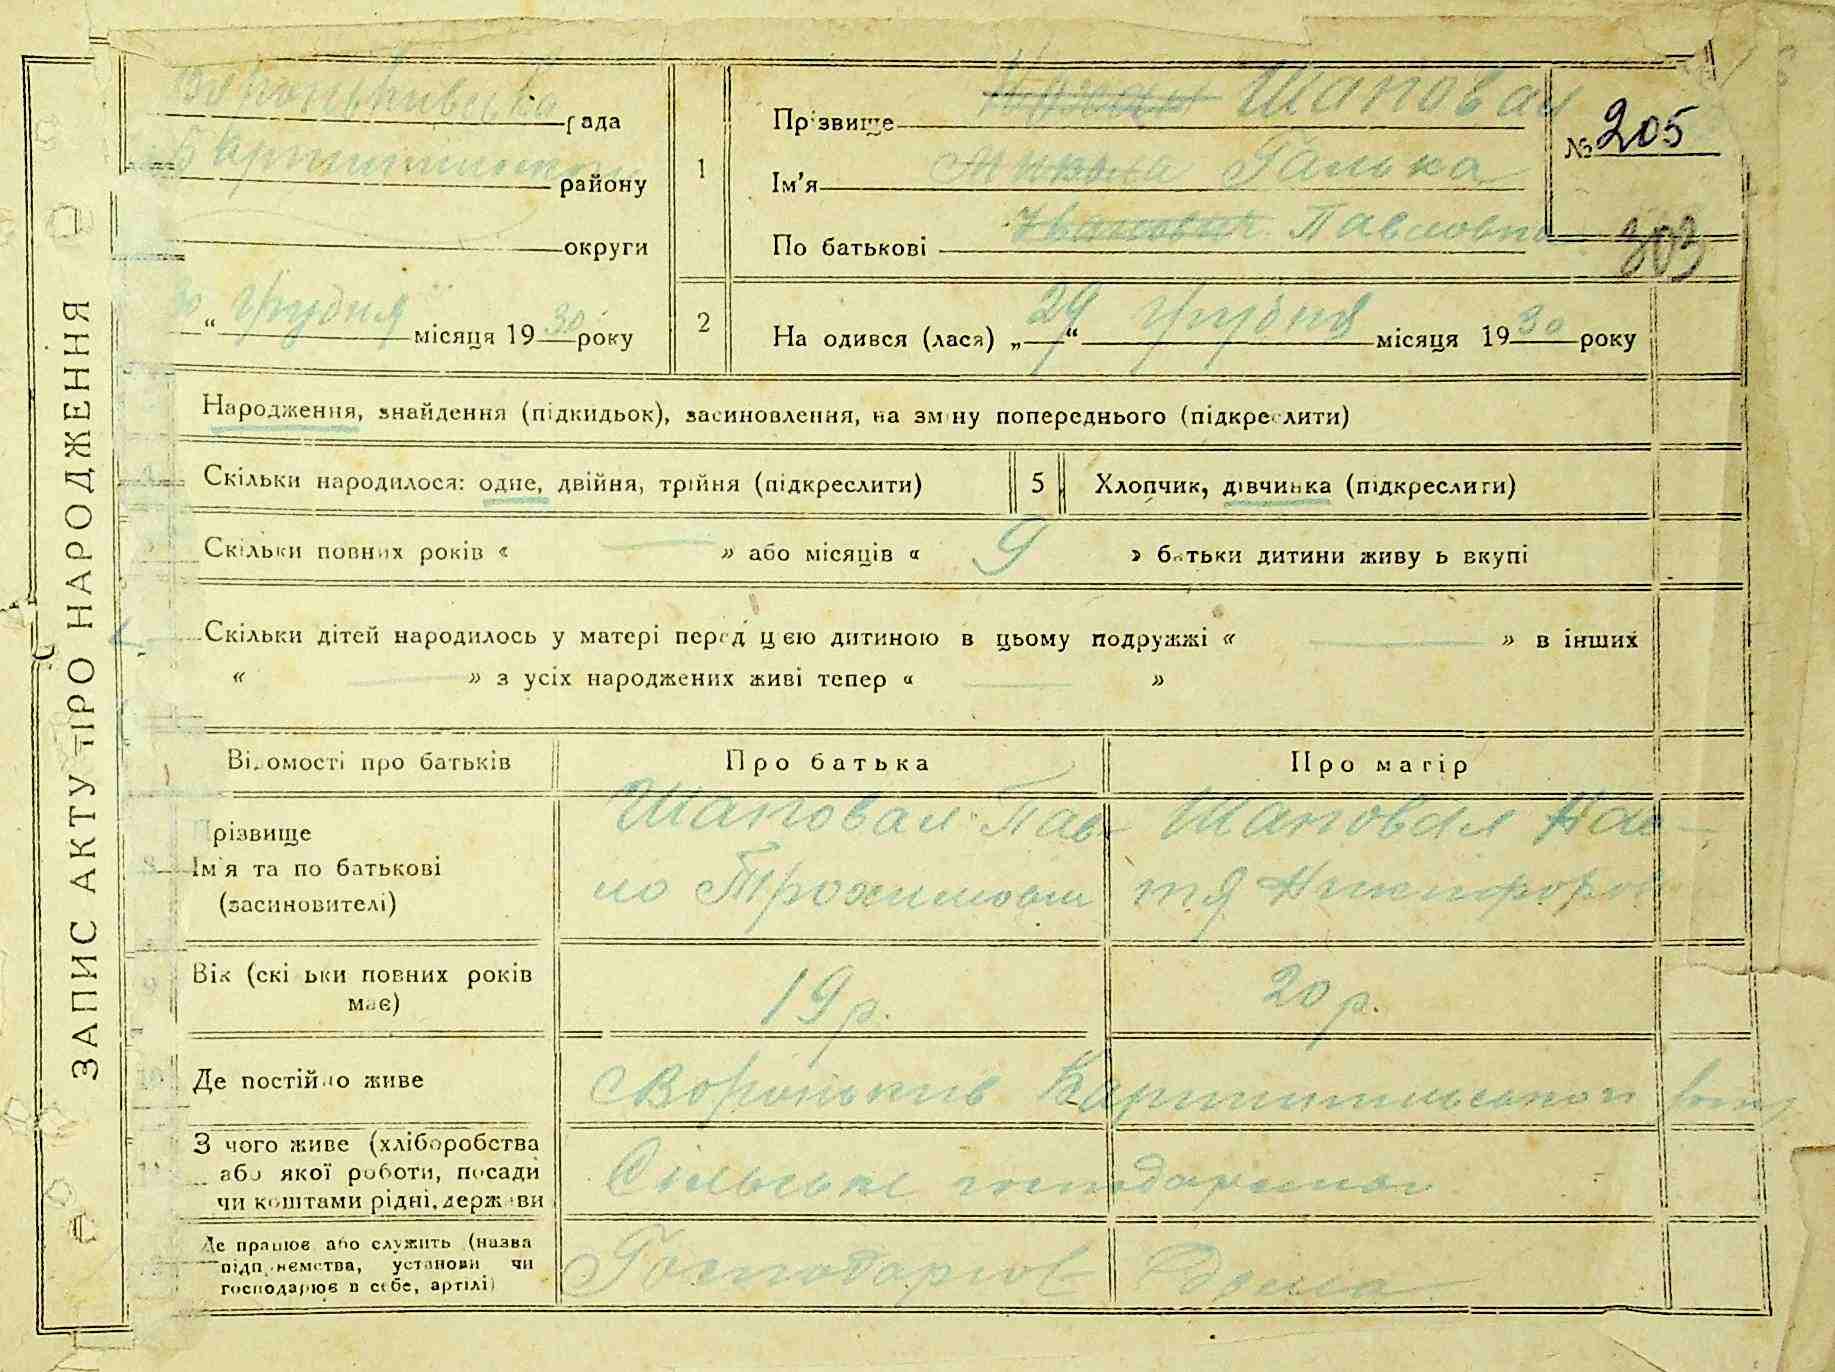 ЗАПИС АКТУ ПРО НАРОДЖЕННЯ
Вороньківська рада
району
округи
30 “ грудня місяця 19 30 року
1
Прізвище Шаповал
Ім'я Микола Галька
По батькові Іванович Павловна
№ 205
303
2
На одився (лася) „ 29 “ грудня місяця 19 30 року
Народження, знайдення (підкидьок), засиновлення, на зміну попереднього (підкреслити)
Скільки народилося: одне, двійня, трійня (підкреслити)
5
Хлопчик, дівчинка (підкреслити)
Скільки повних років « — » або місяців « 9 » батьки дитини живу ь вкупі
Скільки дітей народилось у матері перед цією дитиною в цьому подружжі « — » в інших
« — » з усіх народжених живі тепер « — »
Відомості про батьків
Про батька
Про матір
8
Прізвище
Ім'я та по батькові
(засиновителі)
Шаповал Пав-
ло Трохимович
Шаповал Нас-
тя Никифоров
9
Вік (скі ьки повних років
має)
19 р.
20 р.
10
Де постійно живе
Вороньків
11
З чого живе (хліборобства
або якої роботи, посади
чи коштами рідні, держави
Сільське господарство
Де працює або служить (назва
підприємства, установи чи
господарює в себе, артілі)
Господарює Дома